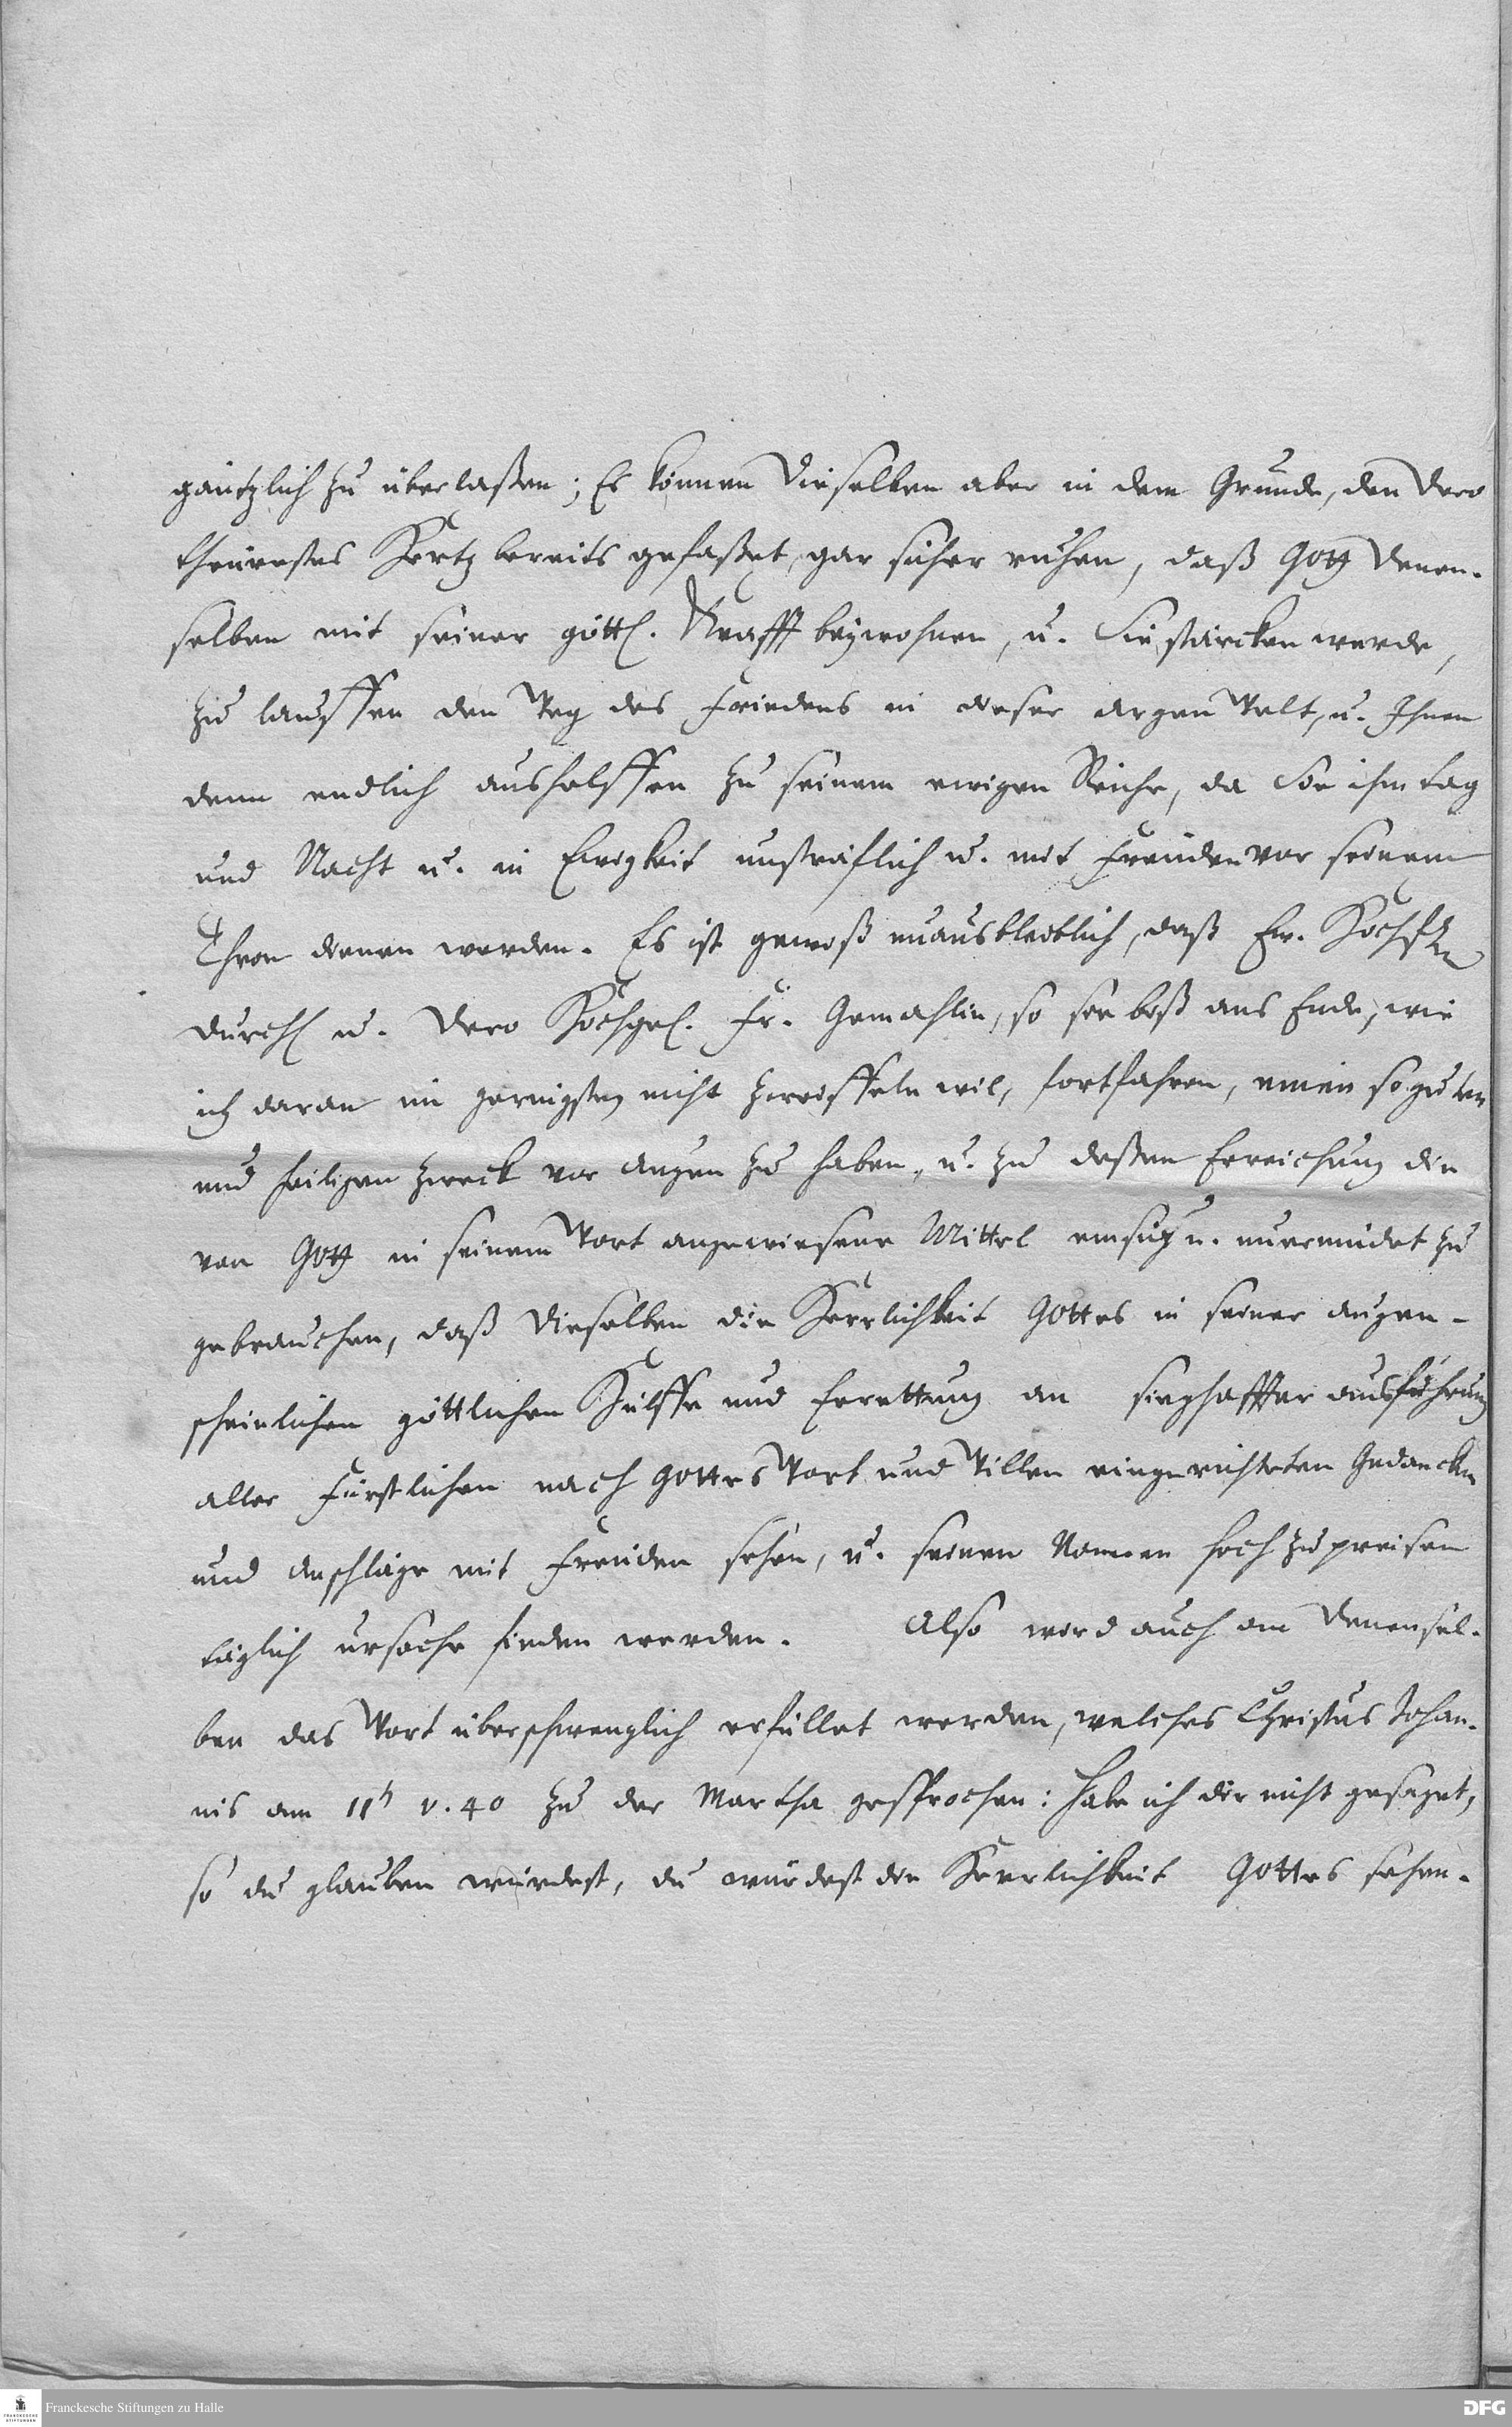 gäntzlich zu überlaßen; Es können Dieselben aber in dem Grunde, den Dero
theürestes Hertz bereits gefaßet, gar sicher ruhen, daß Gott Denen-
selben mit seiner göttl. Krafft beywohnen, u. Sie stärcken werde,
zu lauffen den Weg des Friedens in dieser argen Welt, u. Ihnen
denn endlich aushelffen zu seinem ewigen Reiche, da Sie ihm tag
und Nacht u. in Ewigkeit unsträflich u. mit Freuden vor seinem
Thron dienen werden. Es ist gewiß unausbleiblich, daß Ew. Hochfürstl.
Durchl u. Dero Hochgel. Fr. Gemahlin, so sie biß ans Ende, wie
ich daran im geringsten nicht zweiffeln wil, fortfahren, einen so guten
und heiligen zweck vor augen zu haben, u. zu deßen Erreichung die
von Gott in seinem Wort angewiesene Mittel emsig u. unermüdet zu
gebrauchen, daß Dieselben die Herrlichkeit Gottes in seiner augen-
scheinlichen göttlichen Hülffe und Errettung an sieghaffter ausführung
aller Fürstlichen nach Gottes Wort und Willen eingerichteten Gedancken
und anschläge mit Freuden sehen, u. seinen Namen hoch zu preisen
täglich ursache finden werden. Also wird auch an Denensel-
ben das Wort überschwenglich erfüllet werden, welches Christus Johan-
nis am 11 v. 40 zu der Martha gesprochen: Habe ich dir nicht gesaget,
so du glauben würdest, du würdest die Herrlichkeit Gottes sehen.
Franckesche Stiftungen zu Halle
DFG